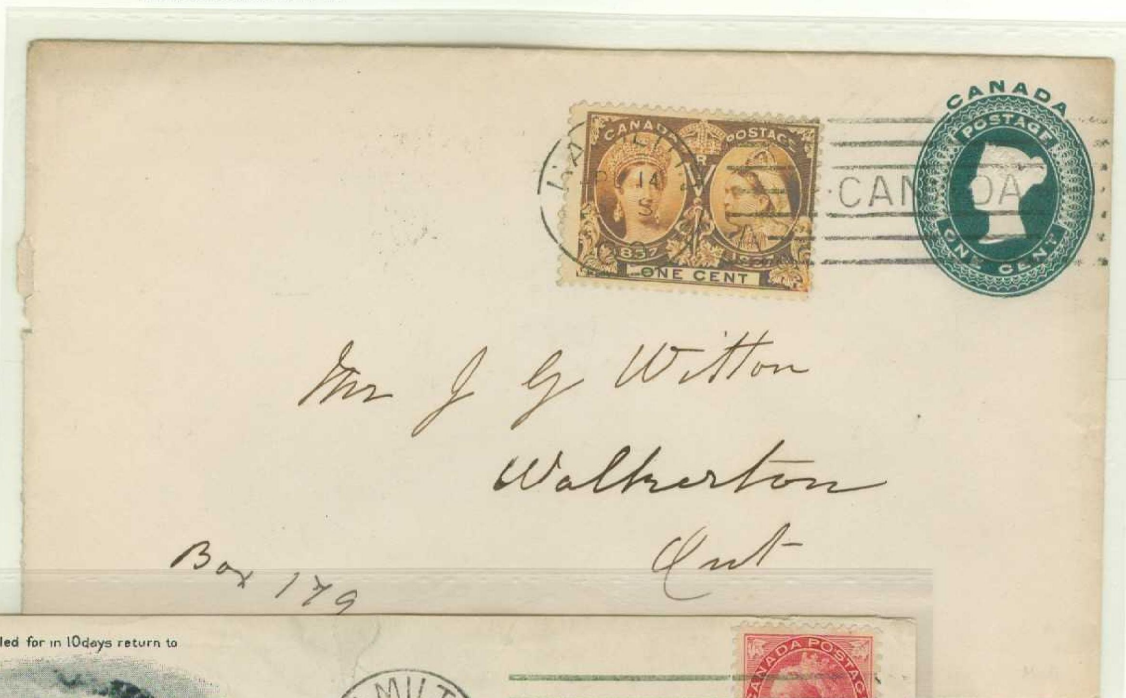 CANADA
POSTAGE
ONE CENT
CANADA POSTAGE
1837 1897
ONE CENT
HAMILTON
14
CANADA
Mr J G Witton
Walkerton
Ont
Box 179
led for in 10days return to
CANADA POSTAGE
AMILT